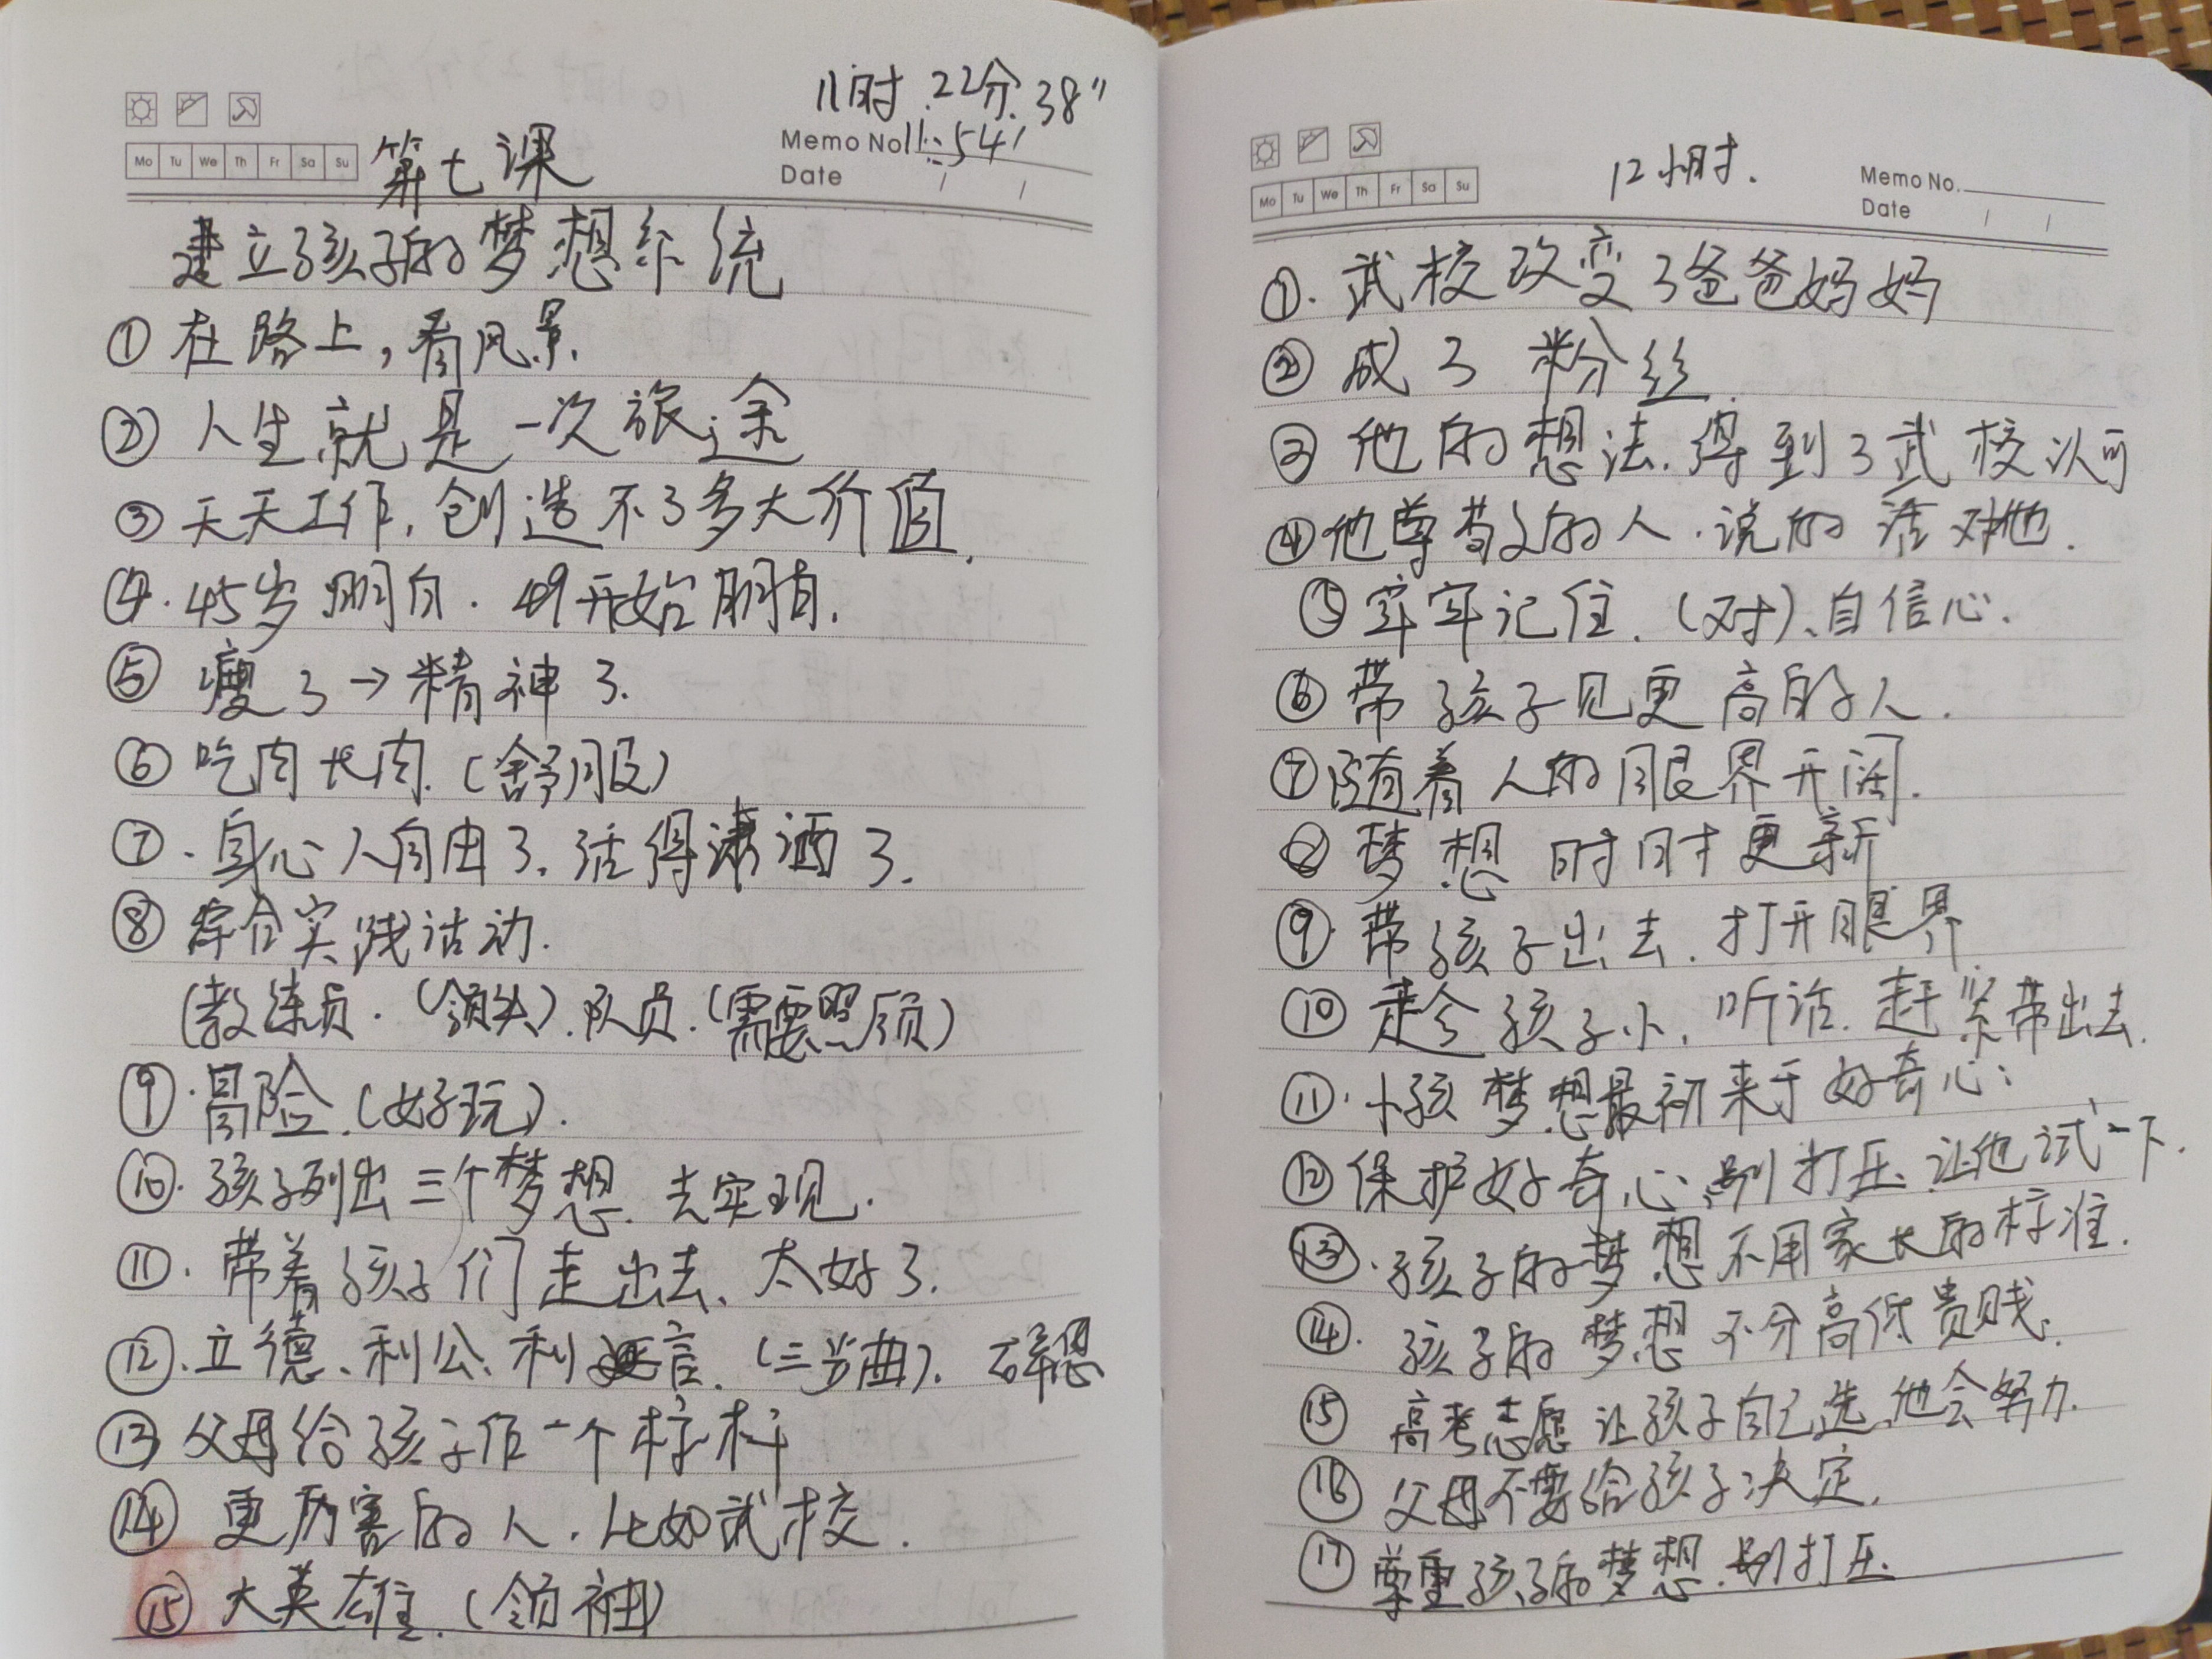 11时.22分.38"
Memo No 11:54'
Mo Tu We Th Fr Sa Su
第七课
Date / /
建立孩子的梦想系统
① 在路上,看风景.
② 人生就是一次旅途
③ 天天工作,创造不了多大价值.
④.45岁明白.49开始明白.
⑤ 瘦了→精神了.
⑥ 吃肉长肉.(舒服)
⑦、身心人自由了.活得潇洒了.
⑧ 综合实践活动.
(教练员.(领头).队员.(需要照顾)
⑨.冒险.(好玩).
⑩.孩子列出三个梦想.去实现.
⑪.带着孩子们走出去、太好了.
⑫.立德、利公、利言.(三步曲).
⑬ 父母给孩子作一个标杆
⑭ 更厉害的人.比如武校.
⑮ 大英雄.(领袖)
12小时.
Memo No.
Mo Tu We Th Fr Sa Su
Date / /
①.武校改变了爸爸妈妈
② 成了粉丝.
③ 他的想法.得到了武校认可
④他尊敬的人.说的话对他.
⑤牢牢记住.(对)、自信心.
⑥ 带孩子见更高的人.
⑦随着人的眼界开阔.
⑧ 梦想时时更新
⑨.带孩子出去.打开眼界
⑩ 趁孩子小.听话.赶紧带出去.
⑪.小孩梦想最初来于好奇心:
⑫保护好奇心,别打压、让他试一下.
⑬.孩子的梦想不用家长的标准.
⑭.孩子的梦想不分高低贵贱.
⑮ 高考志愿让孩子自己选,他会努力.
⑯ 父母不要给孩子决定.
⑰ 尊重孩子的梦想.别打压.